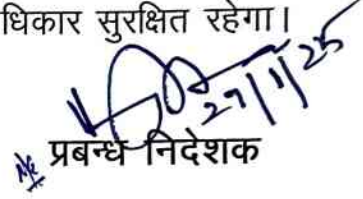 धिकार सुरक्षित रहेगा।
27/1/25
प्रबन्ध निदेशक